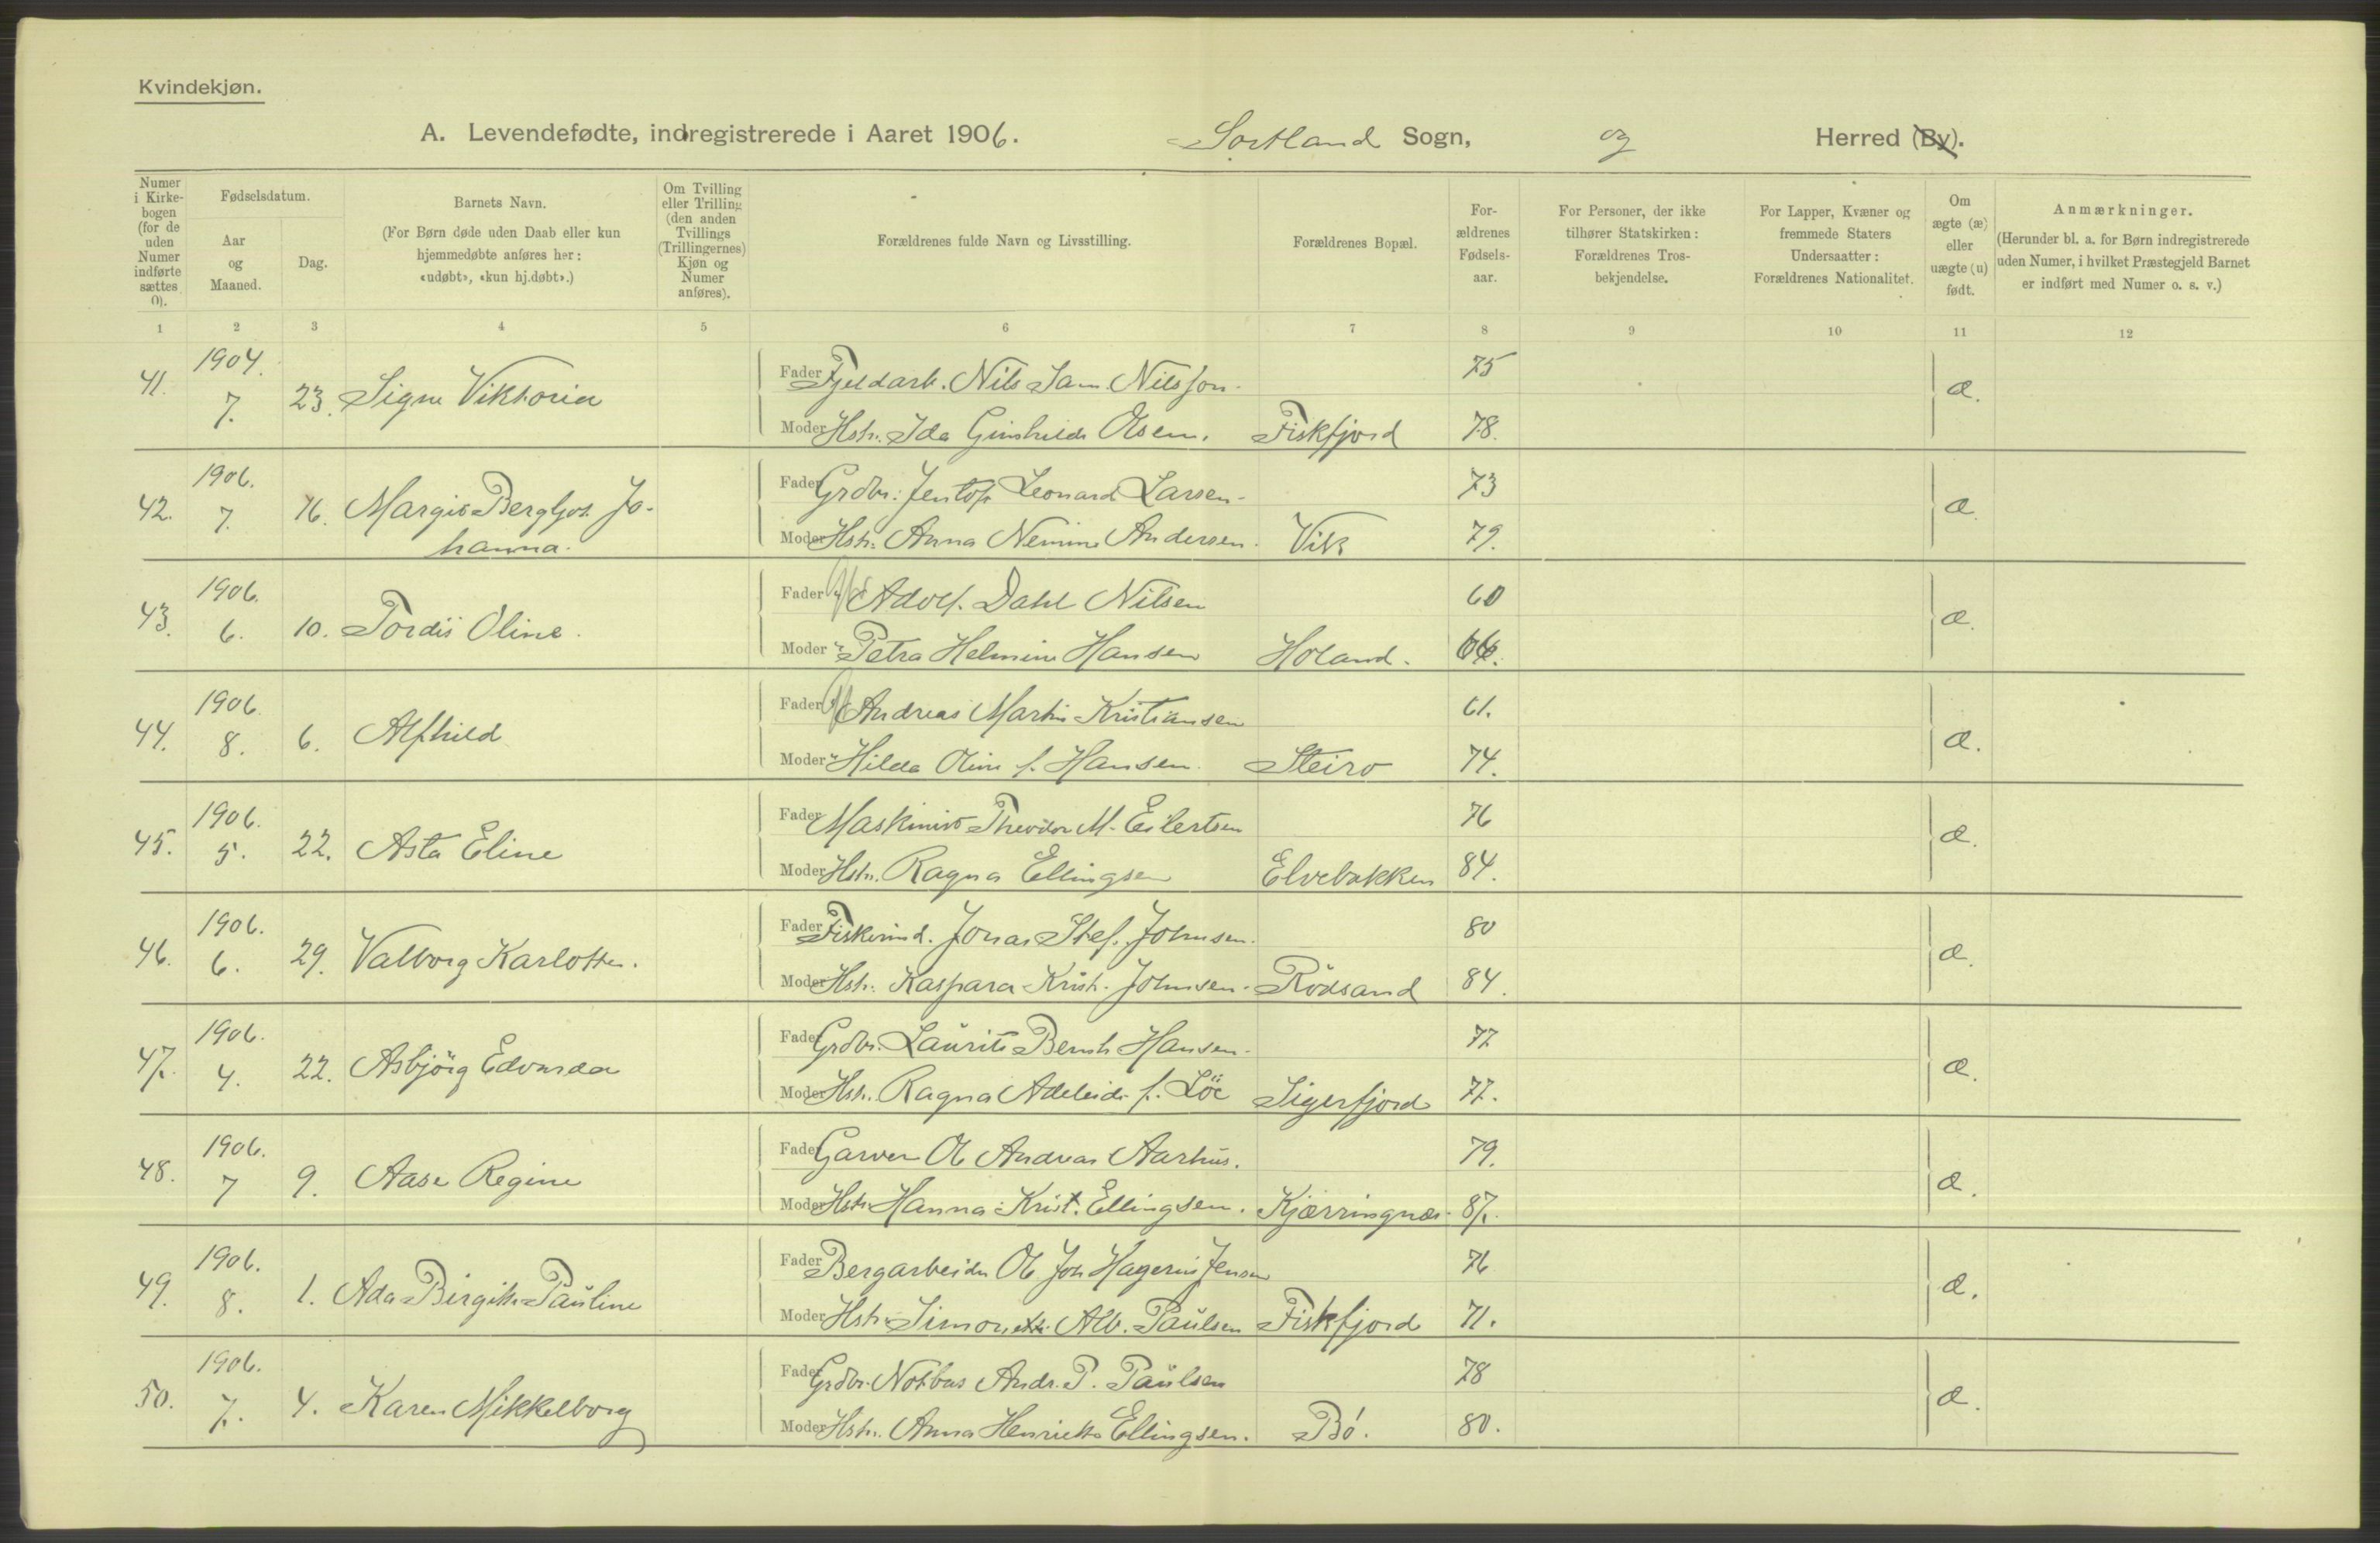 Kvindekjøn.
A. Levendefødte, indregistrerede i Aaret 1906. Sortland Sogn, og Herred (By).
Numer i Kirke-bogen (for de uden Numer indførte sættes 0).
Fødselsdatum.
Aar og Maaned.
Dag.
Barnets Navn.
(For Børn døde uden Daab eller kun hjemmedøbte anføres her: «udøbt», «kun hj.døbt».)
Om Tvilling eller Trilling (den anden Tvillings (Trillingernes) Kjøn og Numer anføres).
Forældrenes fulde Navn og Livsstilling.
Forældrenes Bopæl.
For-ældrenes Fødsels-aar.
For Personer, der ikke tilhører Statskirken: Forældrenes Tros-bekjendelse.
For Lapper, Kvæner og fremmede Staters Undersaatter: Forældrenes Nationalitet.
Om ægte (æ) eller uægte (u) født.
Anmærkninger.
(Herunder bl. a. for Børn indregistrerede uden Numer, i hvilket Præstegjeld Barnet er indført med Numer o. s. v.)
1 2 3 4 5 6 7 8 9 10 11 12
1904. Fader Fjeldarb. Nils Jam. Nilsson. 75
41. 7. 23. Signe Viktoria æ.
Moder Hstr. Ida Gunhilde Olsen. Fiskfjord 78.
1906. Fader Grdbr. Jentoft Leonard Larsen. 73
42. 7. 16. Margit Bergljot Jo- æ
hanna. Moder Hstr. Anna Nemine Andersen. Vik 79.
1906. Fader Adolf Dahl Nilsen 60
43. 6. 10. Tordis Oline. æ.
Moder " Petra Helmine Hansen Holand. 66.
1906. Fader Andreas Martin Kristiansen 61.
44. 8. 6. Alfhild æ.
Moder " Hilda Oline f. Hansen. Steiro 74.
1906. Fader Maskinist Theodor M. Eilertsen 76
45. 5. 22. Asta Eline æ.
Moder Hstr. Ragna Ellingsen Elvebakken 84.
1906. Fader Fiskerind. Jonas Stef. Johnsen. 80
46. 6. 29. Valborg Karlotte. æ.
Moder Hstr. Kaspara Krist. Johnsen. Rödsand 84.
1906. Fader Grdbr. Laurits Bernh Hansen. 77
47. 4. 22. Asbjörg Edvarda æ.
Moder Hstr. Ragna Adeleide f. Löe Sigerfjord 77.
1906. Fader Garver Ol Andreas Aarhus. 79.
48. 7 9. Aase Regine æ.
Moder Hstr. Hanna Krist. Ellingsen. Kjærringnæs. 87.
1906. Fader Bergarbeider Ol Joh Hagerus Jensen 76
49. 8. 1. Ada Birgitte Pauline æ.
Moder Hstr. Simonette Alb. Paulsen Fiskfjord 71.
1906. Fader Grdbr. Notbus Andr. P. Paulsen 78
50. 7. 4. Karen Mikkelborg æ.
Moder Hstr. Anna Henrikke Ellingsen. Bö. 80.